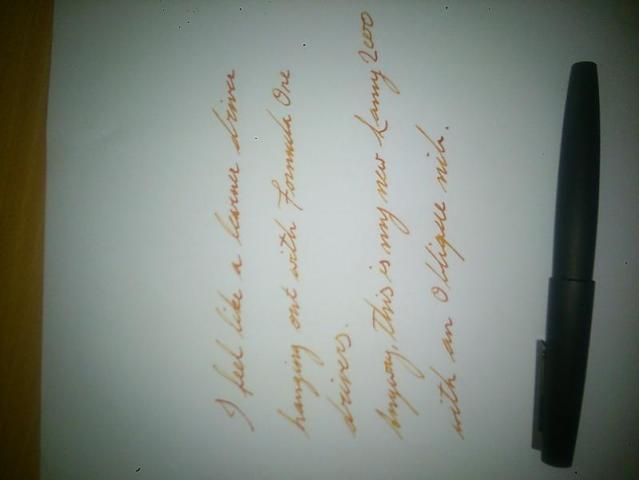 I feel like a learner driver
hanging out with Formula One
drivers.
Anyway, this is my new Lamy 2000
with an Oblique nib.